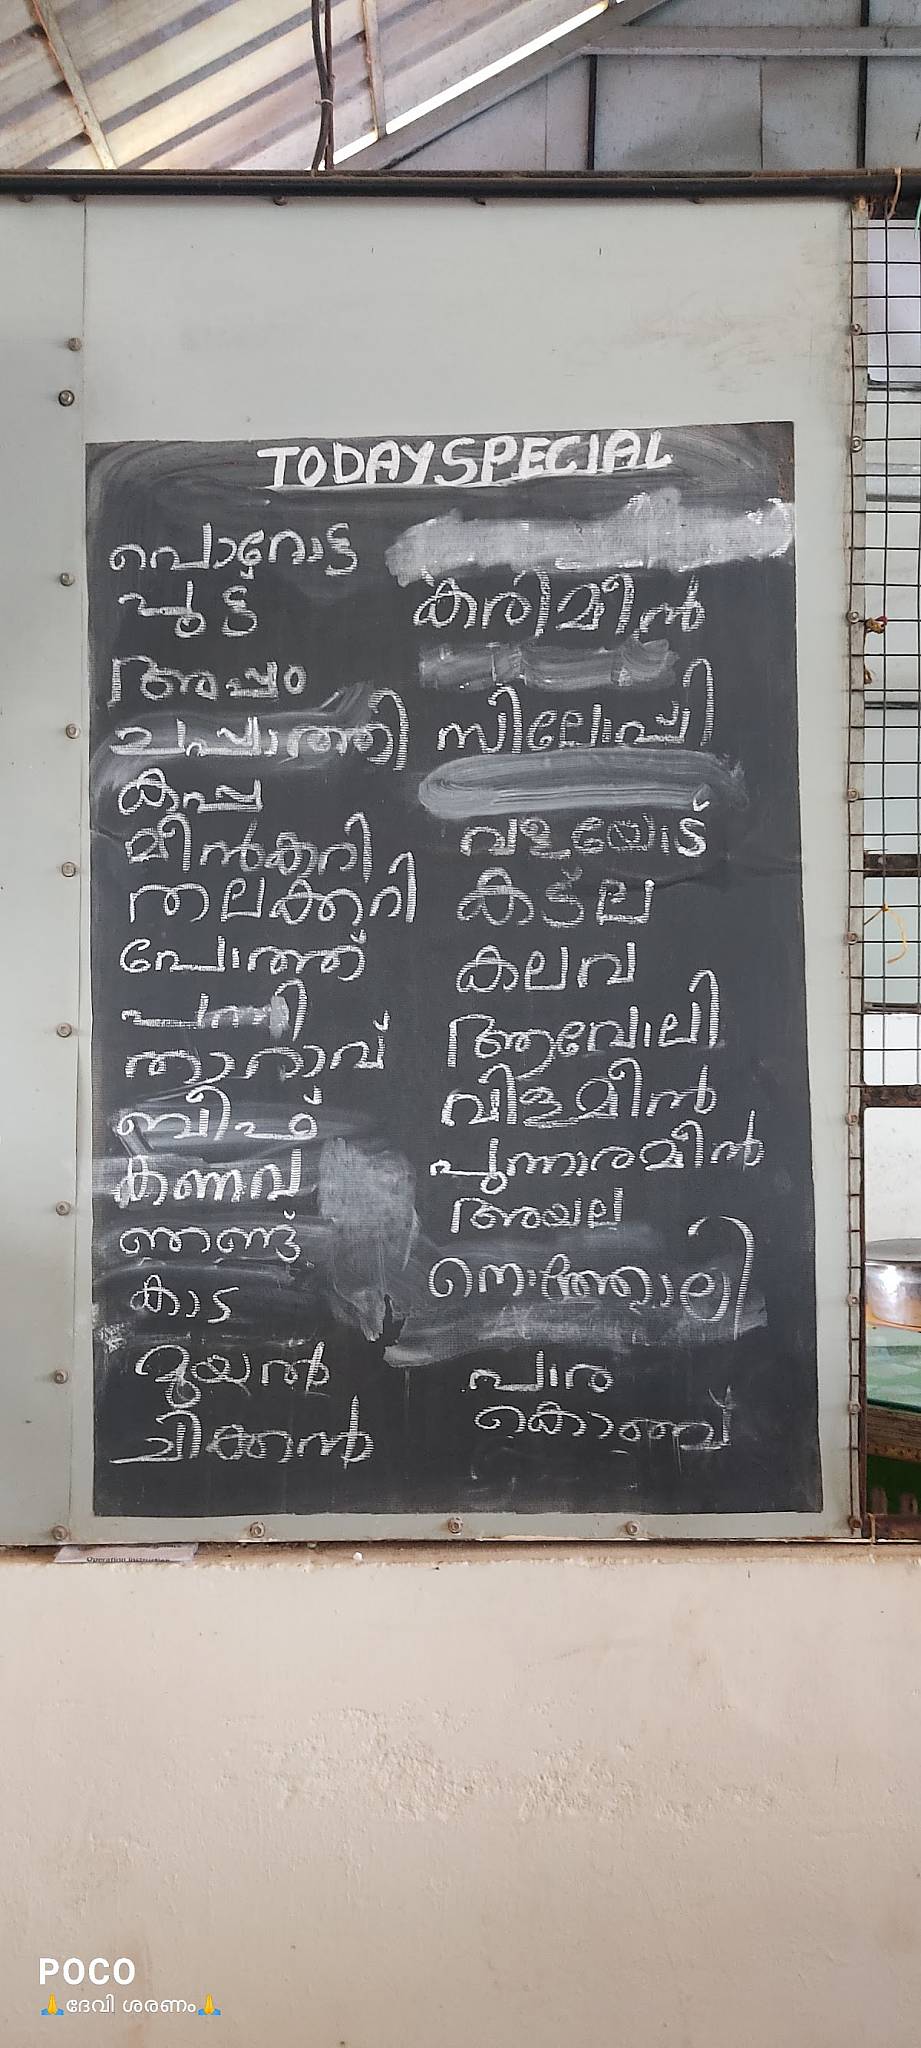 TODAY SPECIAL
പൊറോട്ട
പുട്ട്
അപ്പം
ചപ്പാത്തി
കപ്പ
മീൻകറി
തലക്കറി
പോത്ത്
പന്നി
താറാവ്
ബീഫ്
കണവ
ഞണ്ട്
കാട
മുയൽ
ചിക്കൻ
കരിമീൻ
സിലോപ്പി
വളയോട്
കട്ല
കലവ
ആവോലി
വിളമീൻ
പുന്നാരമീൻ
അയല
നൊത്തോലി
പാര
കൊഞ്ച്
Operation Instruction
POCO
🙏ദേവി ശരണം🙏